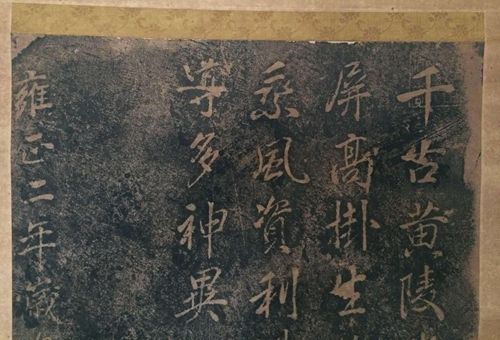 千古黄陵
屏高掛生
乘風資利
多神異
雍正二年歲